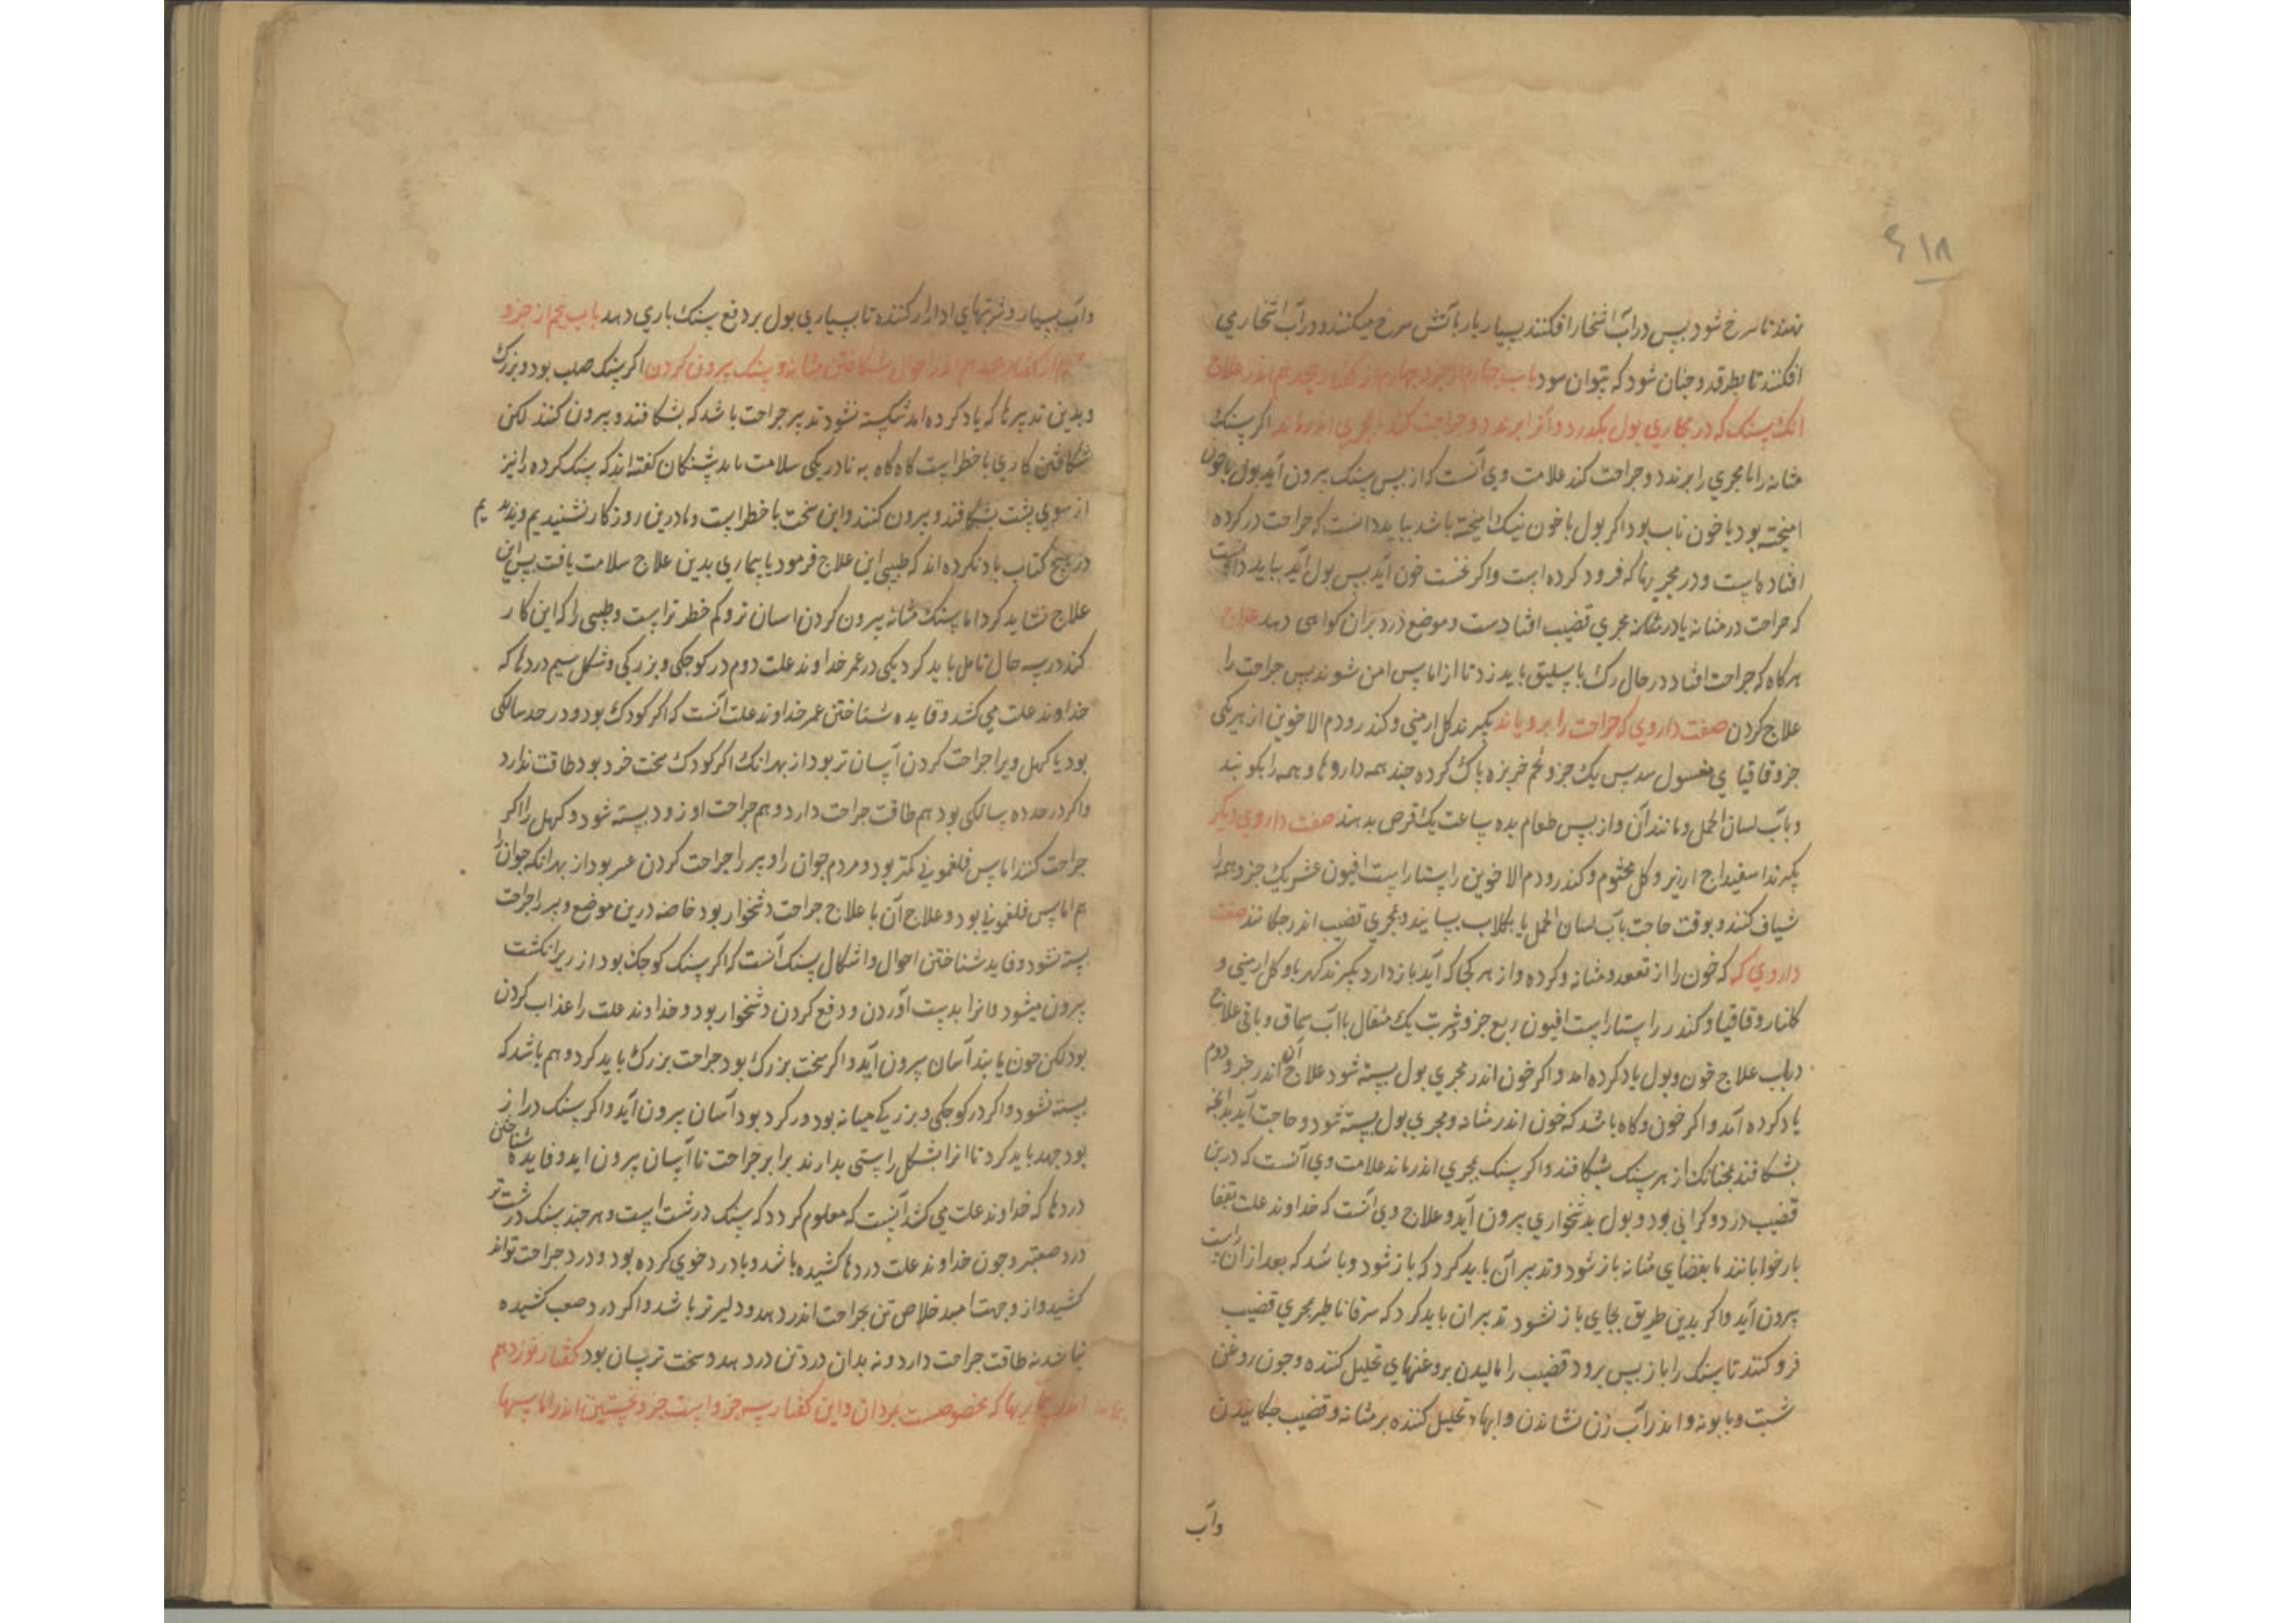 ۶۱۸
نهند تا سرخ شود پس در آب اشخار افکنند بسیار بار باتش سرخ میکنند و در آب اشخار می
افکنند تا بطرقد و چنان شود که بتوان سود باب چهارم از جزو چهارم از کفتار هجدهم اندر علاج
انک سنک که در مجاری بول بکذرد و آنرا برندد و جراحت کند یا بمجری اندر ماند اکر سنک
مثانه را یا مجری را برندد و جراحت کند علامت وی آنست که از پس سنک بیرون آید بول با خون
امیخته بود یا خون ناب بود اکر بول با خون نیک امیخته باشد بباید دانست که جراحت در کرده
افتاده است و در مجریها که فرود کرده است و اکر نخست خون آید پس بول آید بباید دانست
که جراحت در مثانه یا در مجری قضیب افتادست و موضع درد بران کواهی دهد علاج
هرکاه که جراحت افتاد در حال رک باسلیق باید زد تا از اماس امن شوند پس جراحت را
علاج کردن صفت داروی که جراحت را برویاند بکیرند کل ارمنی و کندر و دم الاخوین از هر یکی
جزو قاقیا ی مغسول سدس یک جزو تخم خربزه پاک کرده چند همه داروها و همه را بکوبند
و بآب لسان الحمل و مانند آن و از پس طعام بده ساعت یک قرص بدهند صفت داروی دیکر
بکیرند اسفیداج ارزیز و کل مختوم و کندر و دم الاخوین راستاراست افیون عشر یک جزو همه را
شیاف کنند و بوقت حاجت بآب لسان الحمل یا بکلاب بسایند و بمجری قضیب اندر چکانند صفت
داروی که که خون را از مقعد و مثانه و کرده و از هر کجا که آید باز دارد بکیرند کهربا و کل ارمنی و
کلنار و قاقیا و کندر راستاراست افیون ربع جزو شربت یک مثقال با آب سماق و باقی علاج
در باب علاج خون و بول یاد کرده امد و اکر خون اندر مجری بول بسته شود علاج آن اندر جزو دوم
یاد کرده آمد و اکر خون و کاه باشد که خون اندر مثانه و مجری بول بسته شود و حاجت آید بدانچه
بشکافند بچنانک از بهر سنک بشکافند و اکر سنک بمجری اندر ماند علامت وی آنست که درین
قضیب درد و کرانی بود و بول بدشخواری بیرون آید و علاج وی آنست که خداوند علت بقفا
باز خوابانند تا بفضای مثانه باز شود و تدبیر آن باید کرد که باز شود و باشد که بعد از آن راست
بیرون آید و اکر بدین طریق بجای باز نشود تدبیر ان باید کرد که سرقاناطیر بمجری قضیب
فرو کنند تا سنک را باز پس برود قضیب را مالیدن بروغنهای تحلیل کننده و چون روغن
شبت و بابونه و اندر آب زن نشاندن و ابهاء تحلیل کننده بر مثانه و قضیب چکانیدن
وآب
وآب بسیار و شربتهای ادرار کننده تا بسیاری بول بر دفع سنک یاری دهد باب پنجم از جزو
چهارم از کفتار هجدهم اندر احوال شکافتن مثانه و سنک بیرون کردن اکر سنک صلب بود و بزرک
و بدین تدبیرها که یاد کرده امد شکسته نشود تدبیر جراحت باشد که بشکافند و بیرون کنند لکن
شکافتن کاری با خطر است کاه کاه به نادر یکی سلامت یابد پشنکان کفته اند که سنک کرده را نیز
از سوی پشت بشکافند و بیرون کنند و این سخت با خطر است و ما درین روزکار نشنیدیم و ندیدیم
در هیچ کتاب یاد نکرده اند که طبیبی این علاج فرمود یا بیماری بدین علاج سلامت یافت پس این
علاج نشاید کرد اما سنک مثانه بیرون کردن اسان تر و کم خطر تر است و طبیبی را که این کار
کند در سه حال تامل باید کرد یکی در عمر خداوند علت دوم در کوچکی و بزرکی و شکل سیم دردها که
خداوند علت می کشد و فایده شناختن عمر خداوند علت آنست که اکر کودک بود و در حد سالکی
بود یا کهل ویرا جراحت کردن آسان تر بود از بهر انک اکر کودک سخت خرد بود طاقت ندارد
و اکر در حد ده سالکی بود هم طاقت جراحت دارد و هم جراحت او زود بسته شود و کهل را اکر
جراحت کنند اماس فلغمونی کمتر بود و مردم جوان را و پیر را جراحت کردن عسر بود از بهر انکه جوان را
هم اماس فلغمونی بود و علاج آن با علاج جراحت دشخوار بود خاصه درین موضع و پیر را جراحت
بسته نشود و فایده شناختن احوال و اشکال سنک آنست که اکر سنک کوچک بود از زیر انکشت
بیرون میشود و انرا بدست آوردن و دفع کردن دشخوار بود و خداوند علت را عذاب کردن
بود لکن چون یابند آسان بیرون آید و اکر سخت بزرک بود جراحت بزرک باید کرد و هم باشد که
بسته نشود و اکر در کوچکی و بزرکی میانه بود و کرد بود آسان بیرون آید و اکر سنک دراز
بود جهد باید کرد تا انرا بشکل راستی بدارند برابر جراحت تا آسان بیرون اید و فایده شناختن
دردها که خداوند علت می کشد آنست که معلوم کردد که سنک درشت است و هر چند سنک درشت تر
درد صعبتر و چون خداوند علت دردها کشیده باشد و با درد خوی کرده بود و درد جراحت تواند
کشید و از وجهت امید خلاص تن بجراحت اندر دهد و دلیرتر باشد و اکر درد صعب کشیده
نباشد نه طاقت جراحت دارد و نه بدان درد تن در دهد و سخت ترسان بود کفتار نوزدهم
اندر بیماریها که مخصوصست بمردان و این کفتار سه جزو است جزو نخستین اندر اماسها